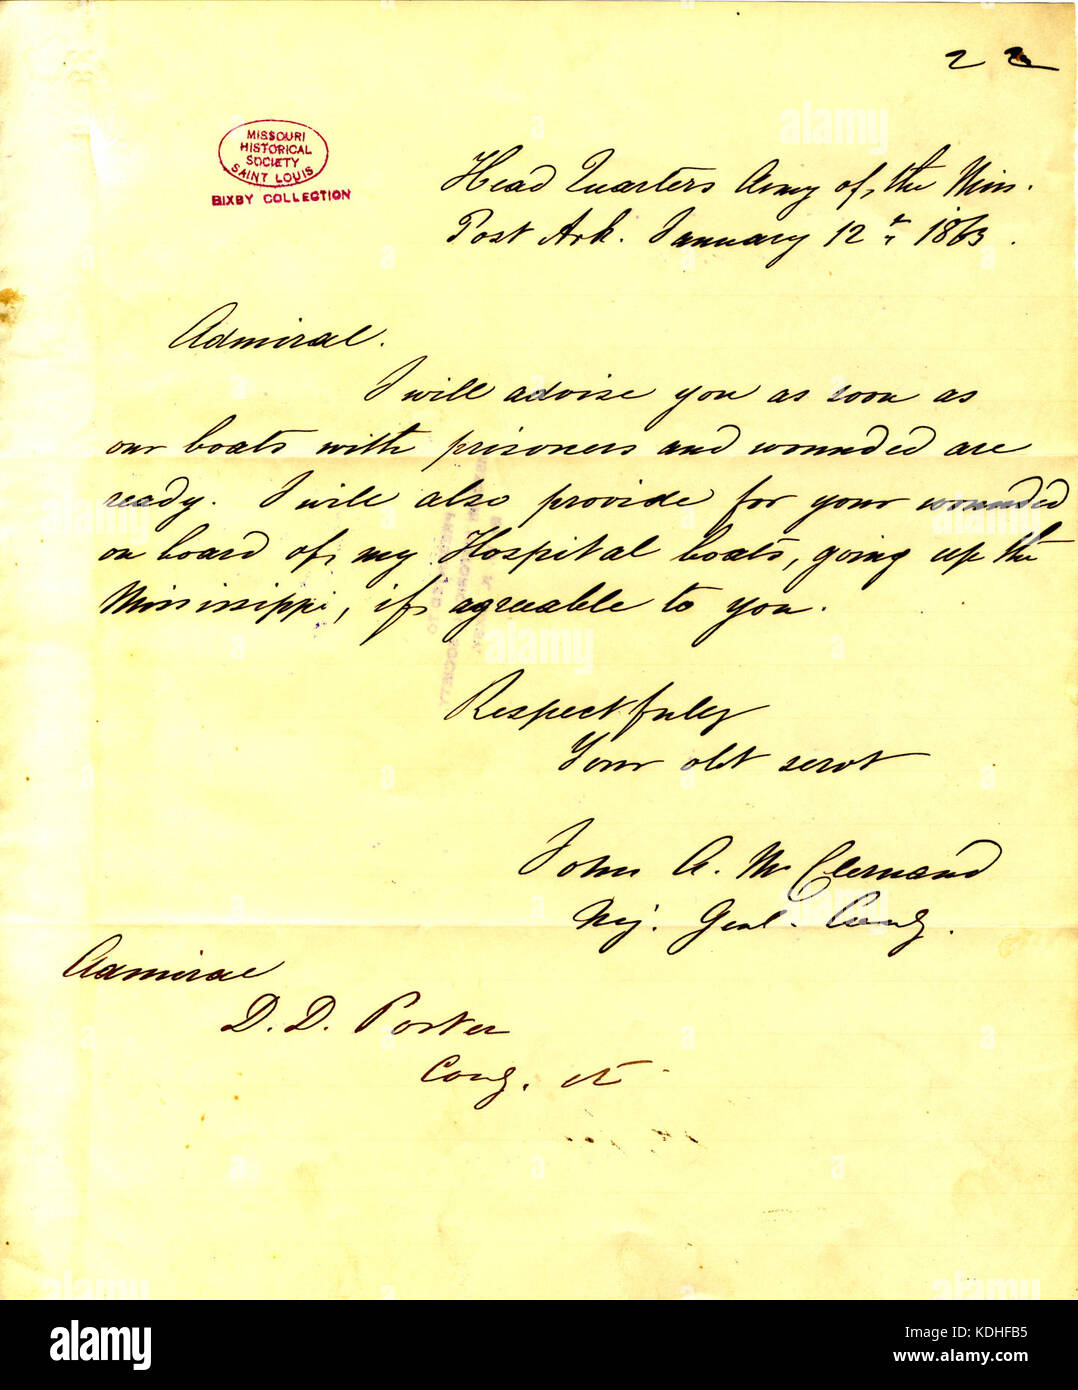 22
MISSOURI
HISTORICAL
SOCIETY
SAINT LOUIS
BIXBY COLLECTION
Head Quarters Army of the Miss.
Post Ark. January 12" 1863.
Admiral.
I will advise you as soon as
our boats with prisoners and wounded are
ready. I will also provide for your wounded
on board of my Hospital boats, going up the
Mississippi, if agreeable to you.
Respectfully
Your obt servt
John A. McClernand
Maj. Genl. Comdg.
Admiral
D. D. Porter
Comdg.
alamy
Image ID: KDHFB5
www.alamy.com